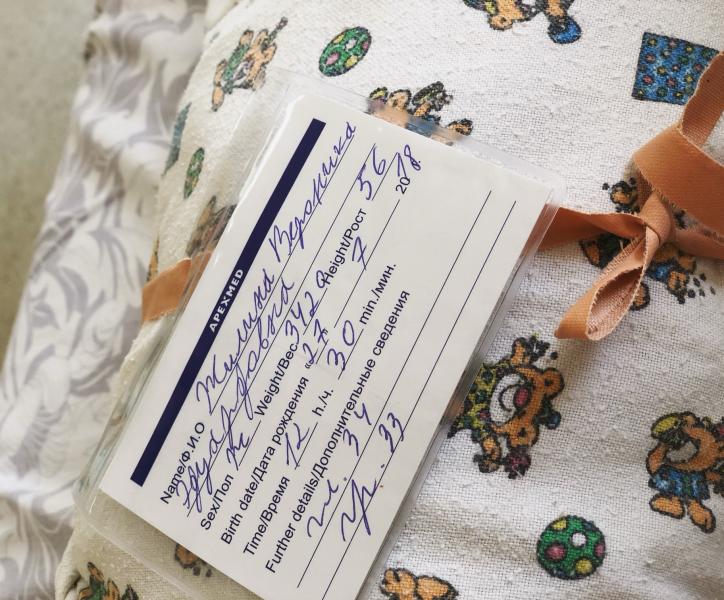 APEXMED
Name/Ф.И.О Жилина Вероника
Эдуардовна
Sex/Пол ж Weight/Вес 3420 Height/Рост 56
Birth date/Дата рождения "27" 7 2018
Time/Время 12 h/ч. 30 min./мин.
Further details/Дополнительные сведения
гол. 34
гр. 33